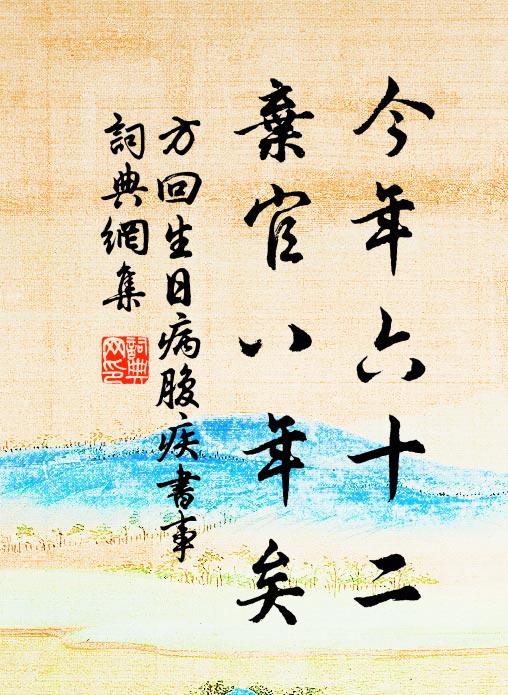 今年六十二
棄官八年矣
方回生日病腹疾書事
詞典網集
詞典
网印